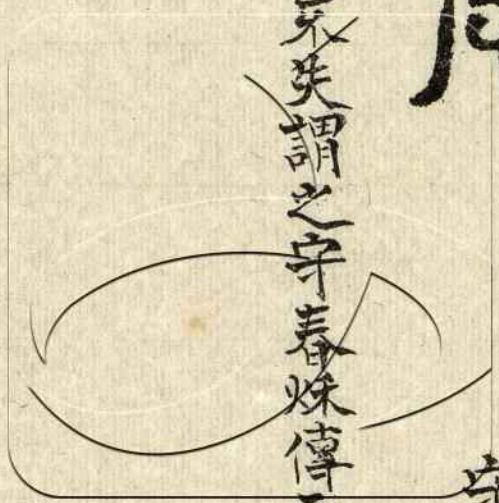 失謂之守春秌傳